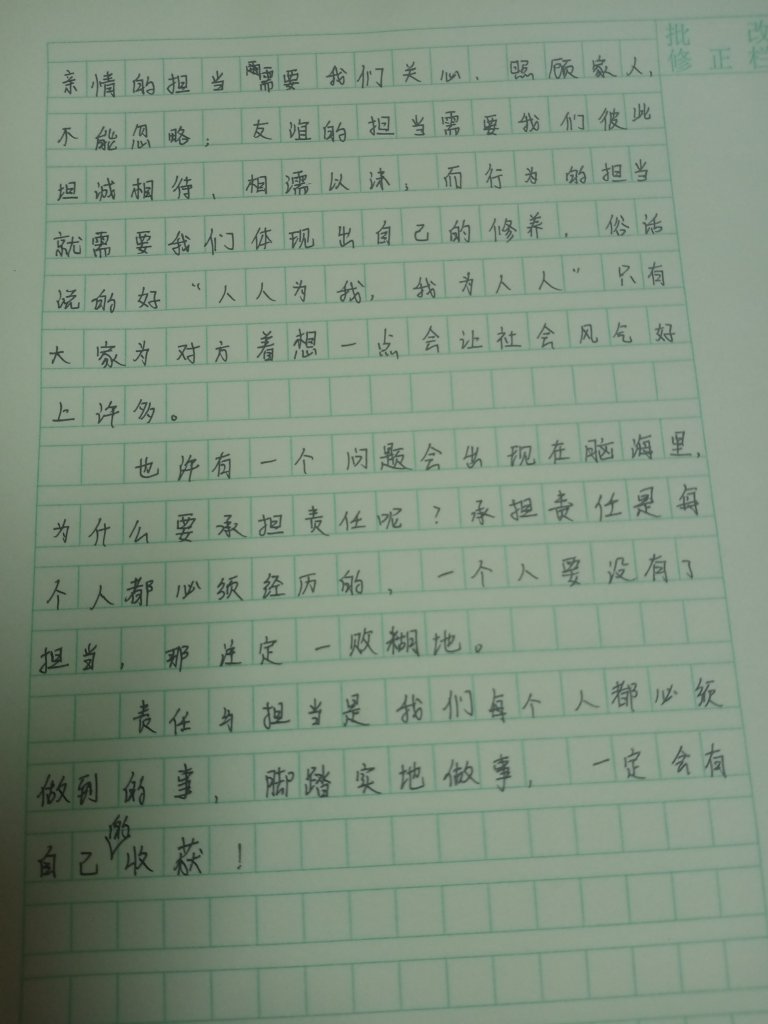 批改
修正栏
亲情的担当需要我们关心、照顾家人,
不能忽略;友谊的担当需要我们彼此
坦诚相待、相濡以沫;而行为的担当
就需要我们体现出自己的修养,俗话
说的好“人人为我,我为人人”只有
大家为对方着想一点会让社会风气好
上许多。
也许有一个问题会出现在脑海里,
为什么要承担责任呢?承担责任是每
个人都必须经历的,一个人要没有了
担当,那注定一败糊地。
责任与担当是我们每个人都必须
做到的事,脚踏实地做事,一定会有
自己的收获!